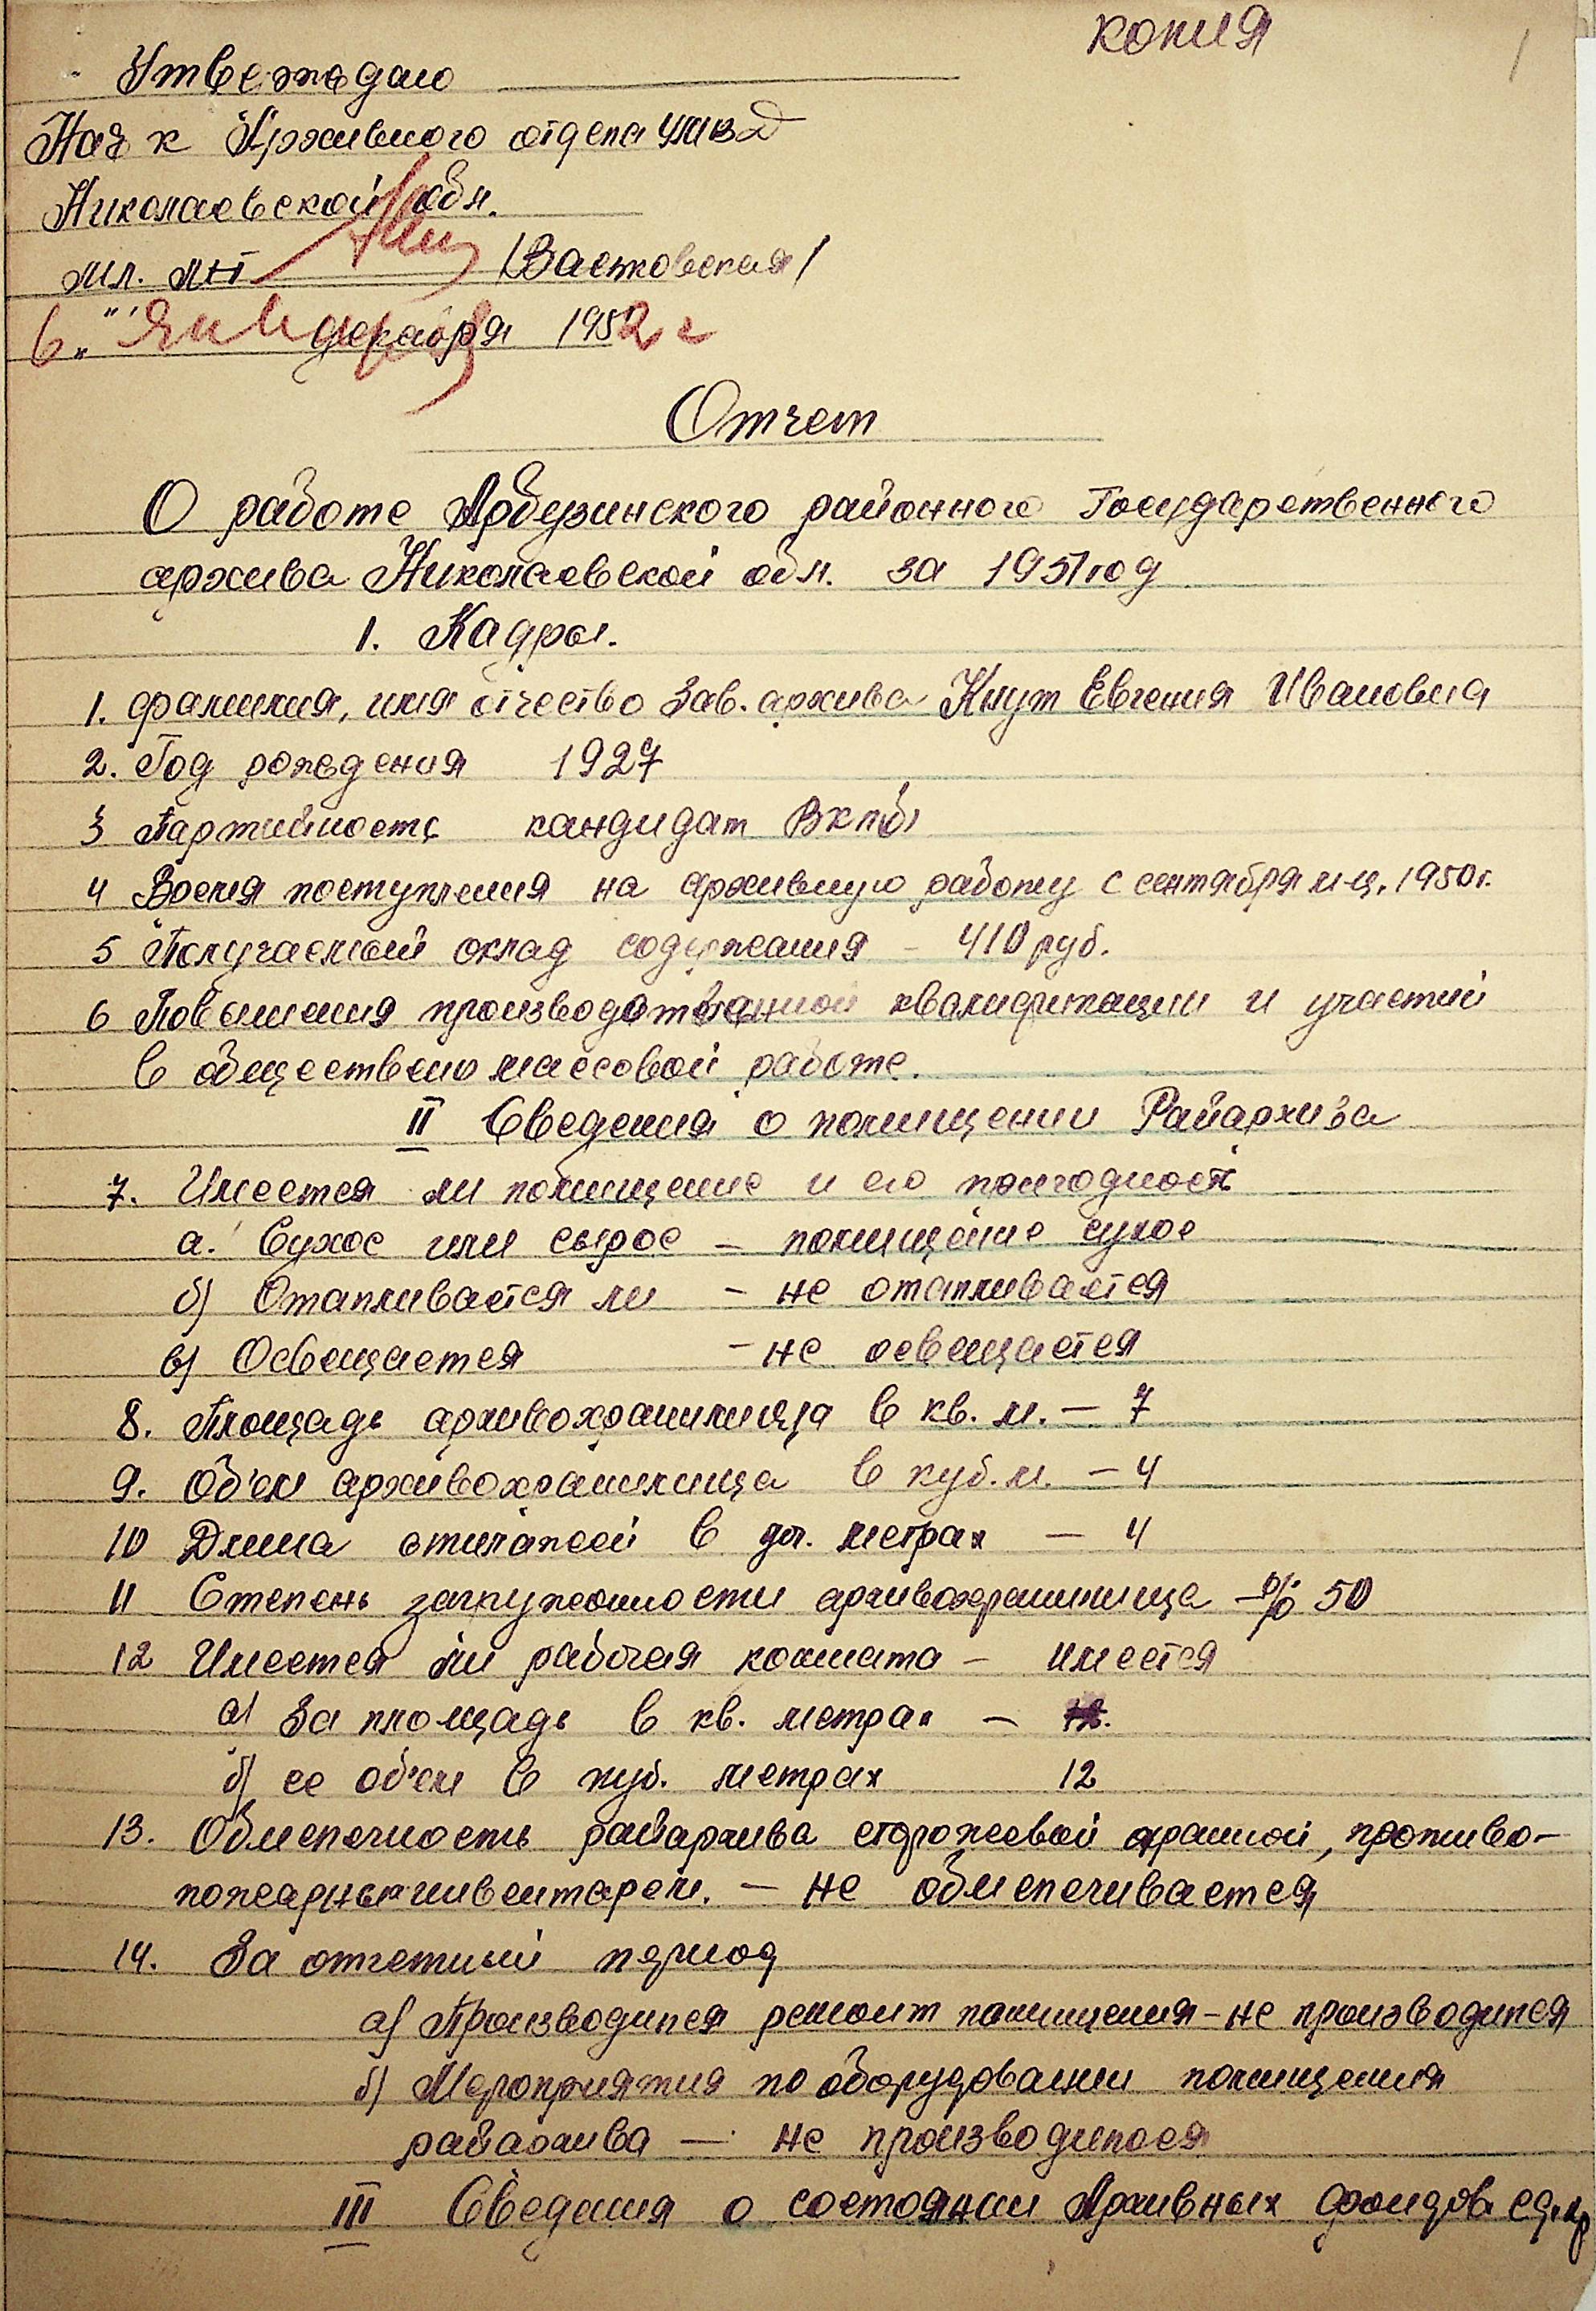 копия
1
Утверждаю
Нач к Архивного отдела УМВД
Николаевской обл.
мл. л-т (Вастковская)
6 " января декабря 1952 г
Отчет
О работе Арбузинского районного Государственного
архива Николаевской обл. за 1951 год
1. Кадры.
1. Фамилия, имя отчество Зав. архива Кнут Евгения Ивановна
2. Год рождения 1927
3 Партийность кандидат ВКП(б)
4 Время поступления на архивную работу с сентября м-ц. 1950 г.
5 Получаемый оклад содержания – 410 руб.
6 Повышения производственной квалификации и участий
в общественно массовой работе.
II Сведения о помищении Райархива
7. Имеется ли помищение и его пригодность
а. Сухое или сырое – помищение сухое
б) Отапливается ли – не отапливается
в) Освещается – не освещается
8. Площадь архивохранилища в кв. м. – 7
9. Об'ем архивохранилища в куб. м. – 4
10 Длина стилажей в уг. метрах – 4
11 Степень загруженности архивохранилища – % 50
12 Имеется ли рабочая комната – имеется
а) За площадь в кв. метрах –
б) ее об'ем в куб. метрах 12
13. Обиспечность райархива сторожевой охраной, противо-
пожарным инвентарем. – не обиспечивается
14. За отчетный период
а) Производился ремонт помищения – не производился
б) Мероприятия по оборудовании помищения
райархива – не производилося
III Сведения о состоянии Архивных фондов ед. хр